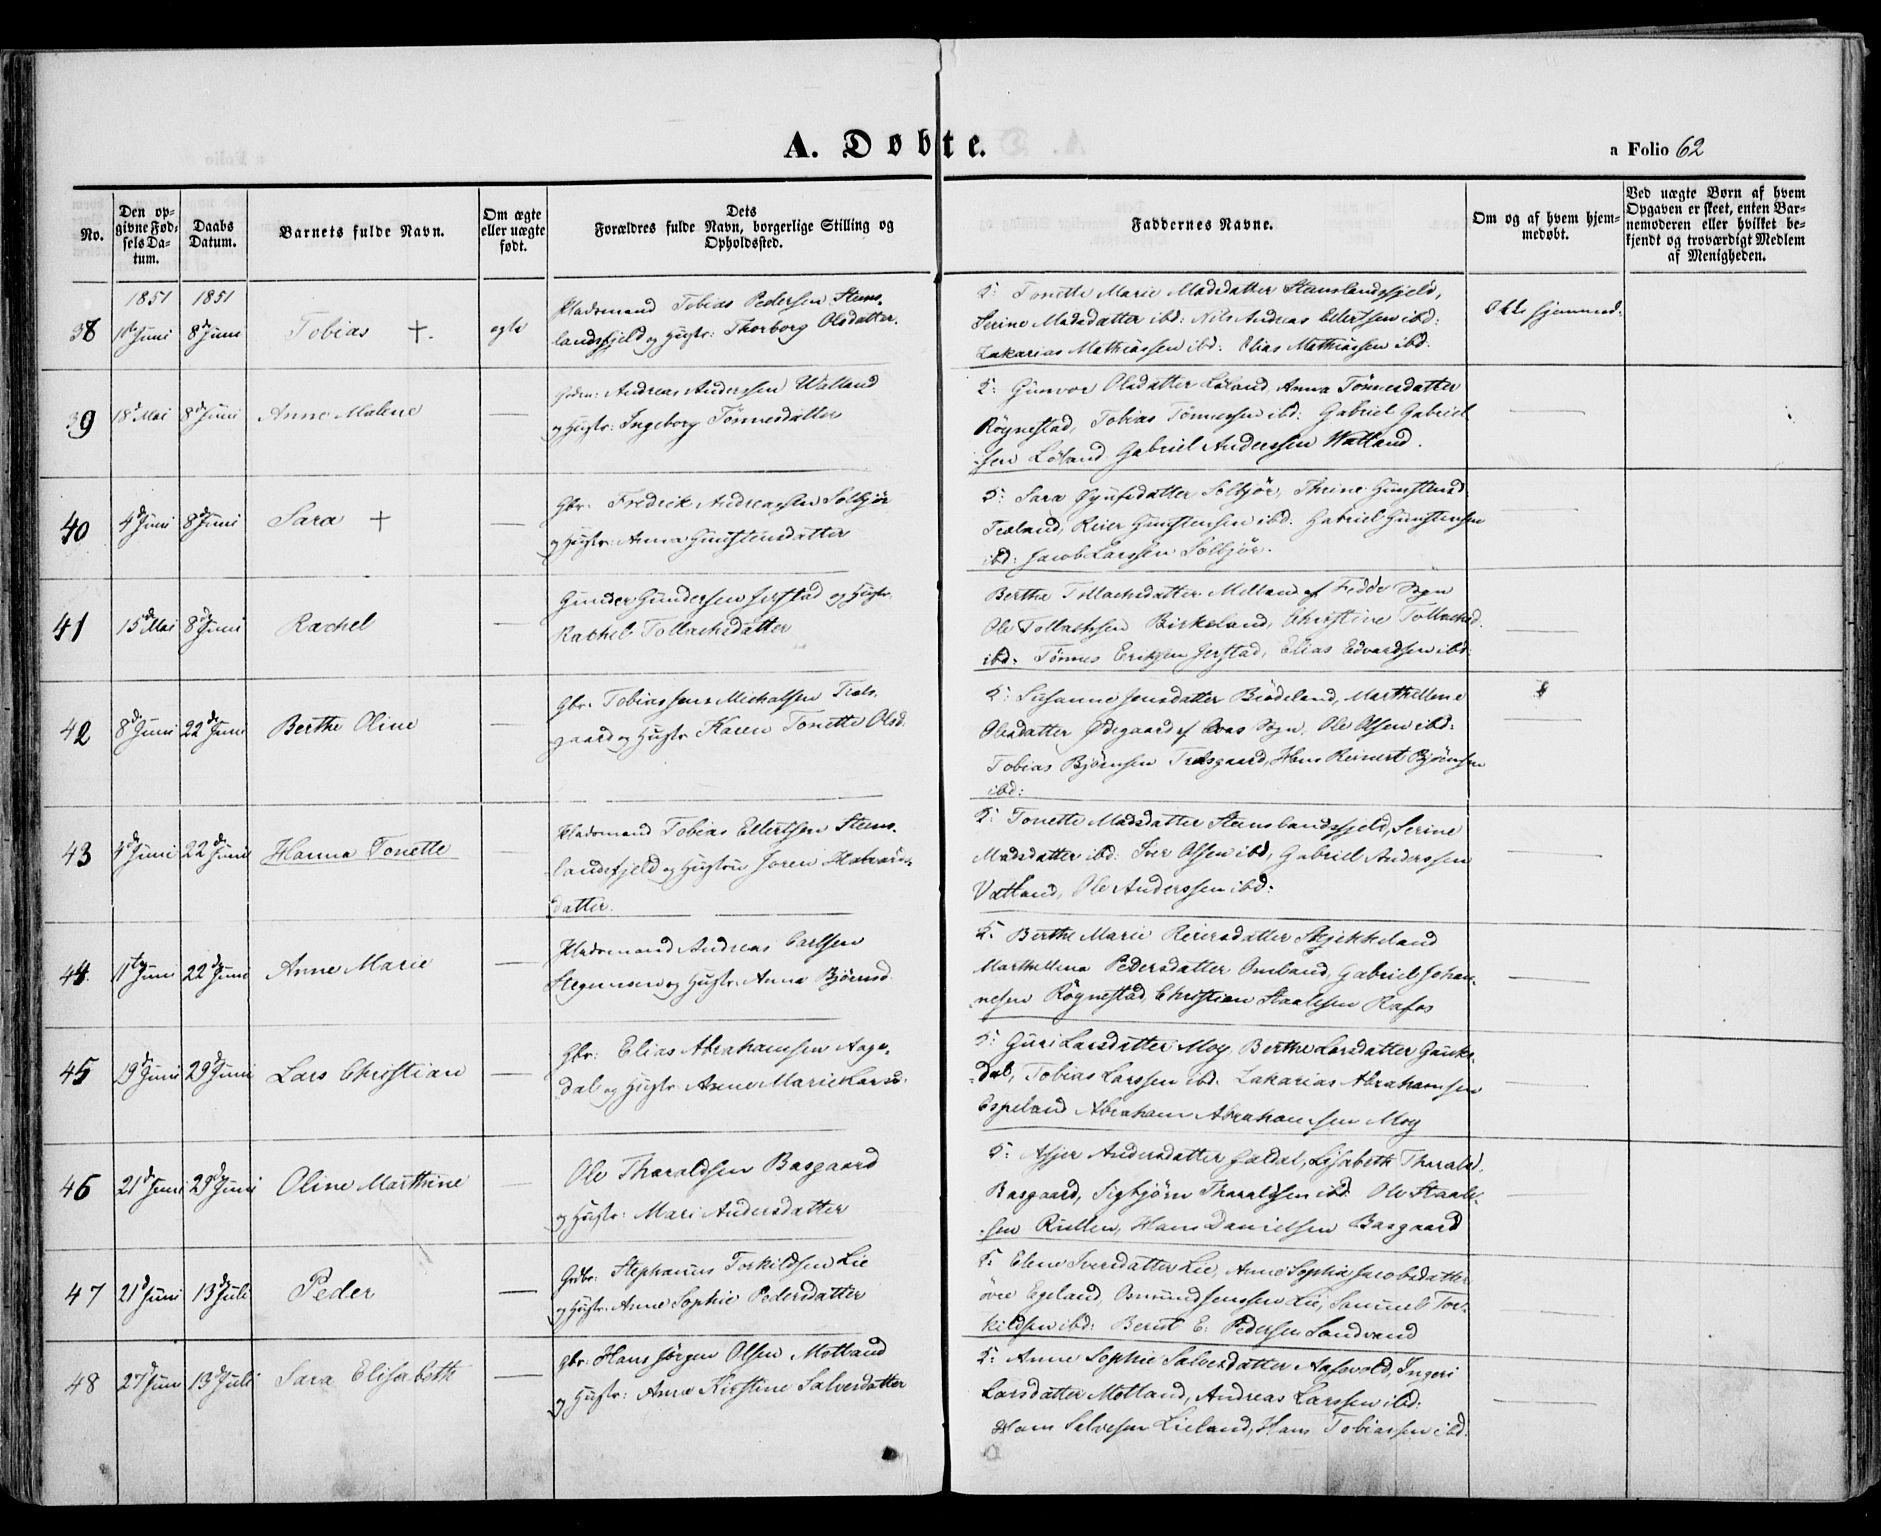 A. Døbte.
a Folio 62
No.
Den op-
givne Fød-
sels Da-
tum.
Daabs
Datum.
Barnets fulde Navn.
Om ægte
eller uægte
født.
Dets
Forældres fulde Navn, borgerlige Stilling og
Opholdssted.
Faddernes Navne.
Om og af hvem hjem-
medøbt.
Ved uægte Børn af hvem
Opgaven er skeet, enten Bar-
nemoderen eller hvilket be-
kjendt og troværdigt Medlem
af Menigheden.
1851 1851
38 1ste Juni 8d Juni Tobias †. ægte
Pladsmand Tobias Pedersen Stens-
landsfjeld og Hustr: Thorborg Olsdatter.
F: Tonette Marie Madsdatter Stenslandsfjeld,
Serine Madsdatter ibd: Nils Andreas Ellertsen ibd:
Zakarias Mathiassen ibd: Elias Mathiassen ibd:
Ikke hjemmed:
39 18d Mai 8d Juni Anne Malene —
Andreas Anderssen Watland
og Hustr: Ingeborg Tönnesdatter
F: Gunvor Olsdatter Löland, Anna Tönnesdatter
Röynestad, Tobias Tönnessen ibd: Gabriel Gabriel
sen Löland Gabriel Anderssen Watland.
—
40 4d Juni 8d Juni Sara † —
Gbr: Fredrik Andreassen Solbjör
og Hustr: Anna Gunstensdatter
F: Sara Øyufsdatter Solbjör, Thrine Gunstensd
Træland, Reier Gunstensen ibd. Gabriel Gunstensen
ibd: Jacob Larssen Solbjör.
—
41 15d Mai 8d Juni Rachel —
Gunder Gundersen Jerstad og Hustr.
Rachel Tollachsdatter
Berthe Tollachsdatter Melland af Fedde Sogn
Ole Tollachsen Birkeland, Christine Tollachsd.
ibd: Tönnes Eriksen Jerstad, Elias Edvardsen ibd:
—
42 8d Juni 22d Juni Berthe Oline —
Gbr. Tobias Jens Michalsen Træls-
gaard og Hustr Karen Tonette Olsd.
F: Susanne Jensdatter Brödeland, Marthe Lene
Olsdatter Ødegaard af Qvas Sogn, Ole Olsen ibd:
Tobias Björnsen Trælsgaard, Hans Reinert Björnsen
ibd:
—
43 4d Juni 22d Juni Hanna Tonette —
Pladsmand Tobias Ellertsen Stens-
landsfjeld og Hustru Joren Halvors-
datter.
F: Tonette Madsdatter Stenslandsfjeld, Serine
Madsdatter ibd: Iver Olsen ibd, Gabriel Anderssen
Vatland, Ole Anderssen ibd:
—
44. 11te Juni 22d Juni Anne Marie —
Pladsmand Andreas Carlsen
Stegemoen og Hustr. Anna Björnsd.
F. Berthe Marie Reiersdatter Skjekkeland
Marthe Lena Pedersdatter Omland, Gabriel Johan-
nesen Röynestad, Christian Staalesen Rafos
—
45 19d Juni 29d Juni Lars Christian —
Gbr: Elias Abrahamsen Aage-
dal og Hustr. Anne Marie Larsd.
F: Guri Larsdatter Moy, Berthe Larsdatter Gauks-
dal, Tobias Larssen ibd. Zakarias Abrahamsen
Espeland Abraham Abrahamsen Moy
—
46 21d Juni 29d Juni Oline Marthine —
Ole Tharaldsen Basgaard
og Hustr: Mari Andersdatter
F: Asjer Andersdatter Galdal, Lisabeth Tharalsd.
Basgaard, Sigbjörn Tharaldsen ibd: Ole Staale-
sen Rullen, Hans Danielsen Basgaard
—
47 21d Juni 13d Juli Peder —
Grbr: Stephanus Torkildsen Lie
og Hustr: Anne Sophie Pedersdatter
F: Elene Iversdatter Lie, Anne Sophie Jacobsdatter
övre Egeland, Omund Jenssen Lie, Samuel Tor-
kildsen ibd: Bernt E: Pedersen Sandvand
—
48 27d Jun 13d Juli Sara Elisabeth —
Gbr: Hans Jörgen Olsen Motland
og Hustr: Anne Kirstine Salvesdatter
F: Anne Sophie Salvesdatter Aasevold, Ingeri
Larsdatter Motland, Andreas Larssen ibd:
Hans Salvesen Lieland, Hans Tobiassen ibd:
—